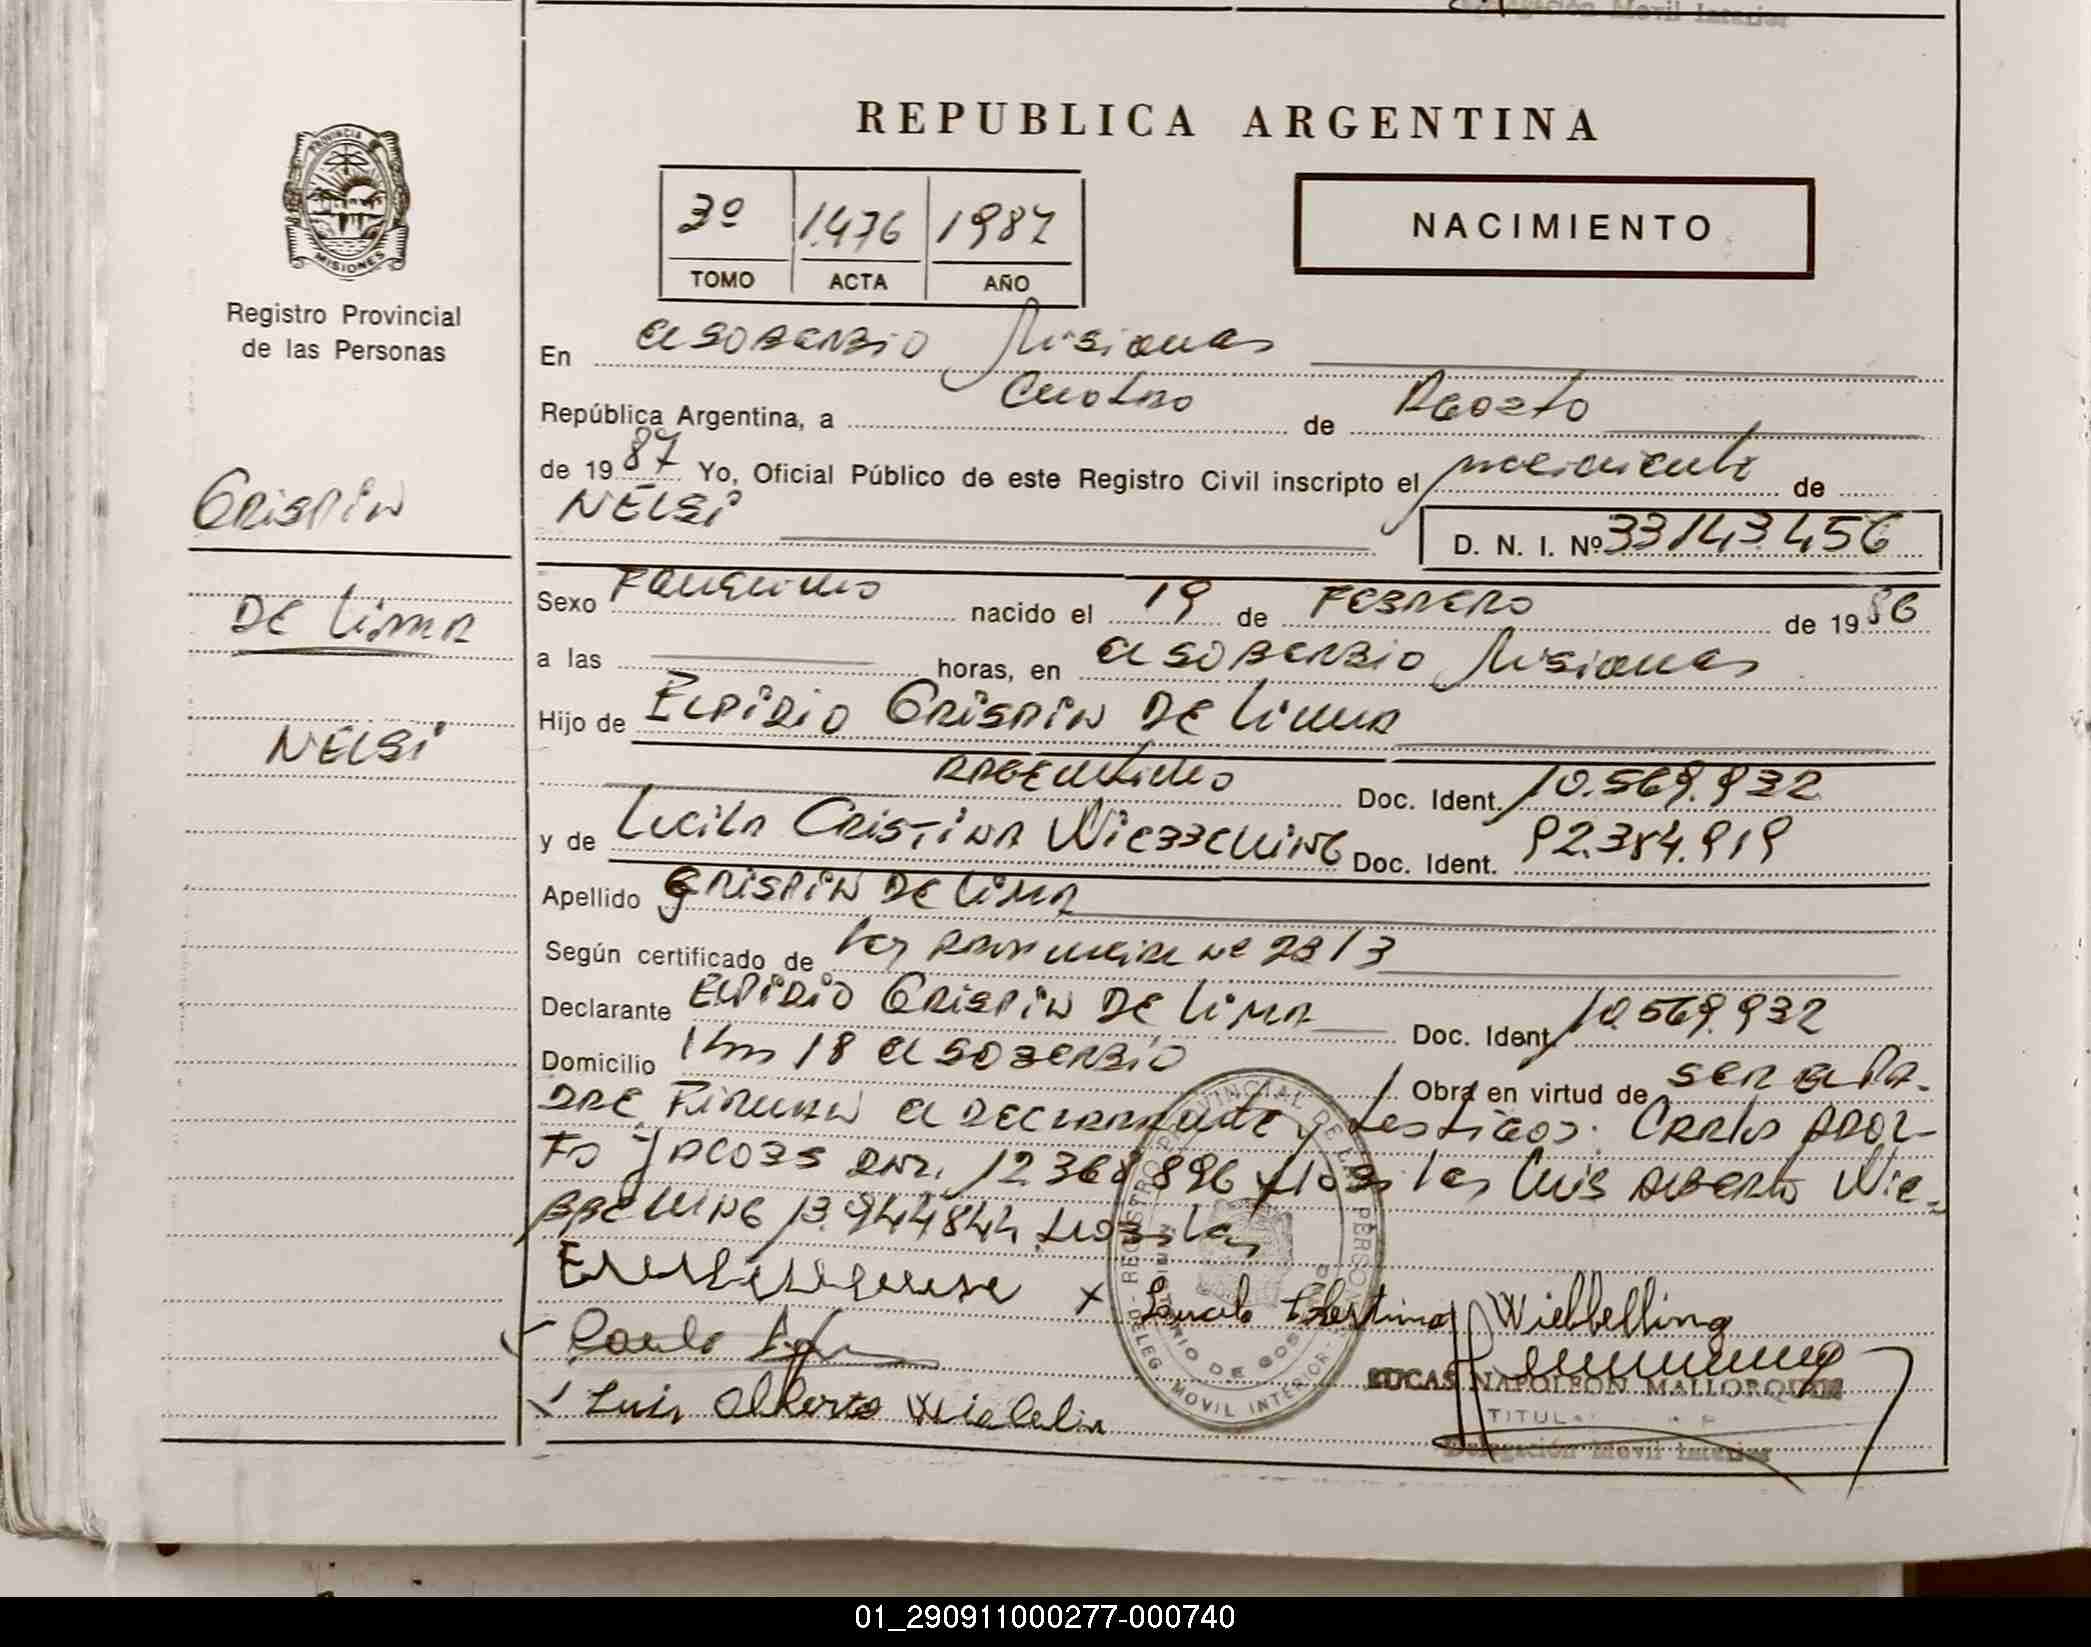 REPUBLICA ARGENTINA
PROVINCIA
MISIONES
Registro Provincial
de las Personas
3º 1.476 1987
TOMO ACTA AÑO
NACIMIENTO
En El SOBERBIO Misiones
República Argentina, a Cuatro de Agosto
de 1987 Yo, Oficial Público de este Registro Civil inscripto el nacimiento de
NELSI D. N. I. Nº 33143.456
CRISPIN
DE LIMA
NELSI
Sexo Femenino nacido el 19 de FEBRERO de 1986
a las horas, en El SOBERBIO Misiones
Hijo de ELPIDIO CRISPIN DE LIMA
ARGENTINO Doc. Ident. 10.569.932
y de LUCILA CRISTINA WIEBBELLING Doc. Ident. 92.384.919
Apellido CRISPIN DE LIMA
Según certificado de Ley Provincial Nº 2813
Declarante ELPIDIO CRISPIN DE LIMA Doc. Ident. 10.569.932
Domicilio Km 18 El SOBERBIO Obra en virtud de SER EL PA-
DRE FIRMAN El DECLARANTE y testigos: CARLOS ADOL-
FO JACOBS DNI. 12.368896 LUIS ALBERTO WIE-
BBELLING 13.944844
Lucila Cristina Wiebbelling
LUCAS NAPOLEON MALLORQUIN
TITULAR
Luis Alberto
Delegación Movil Interior
REGISTRO PROVINCIAL DE LAS PERSONAS
DELEG. MOVIL INTERIOR
01_290911000277-000740